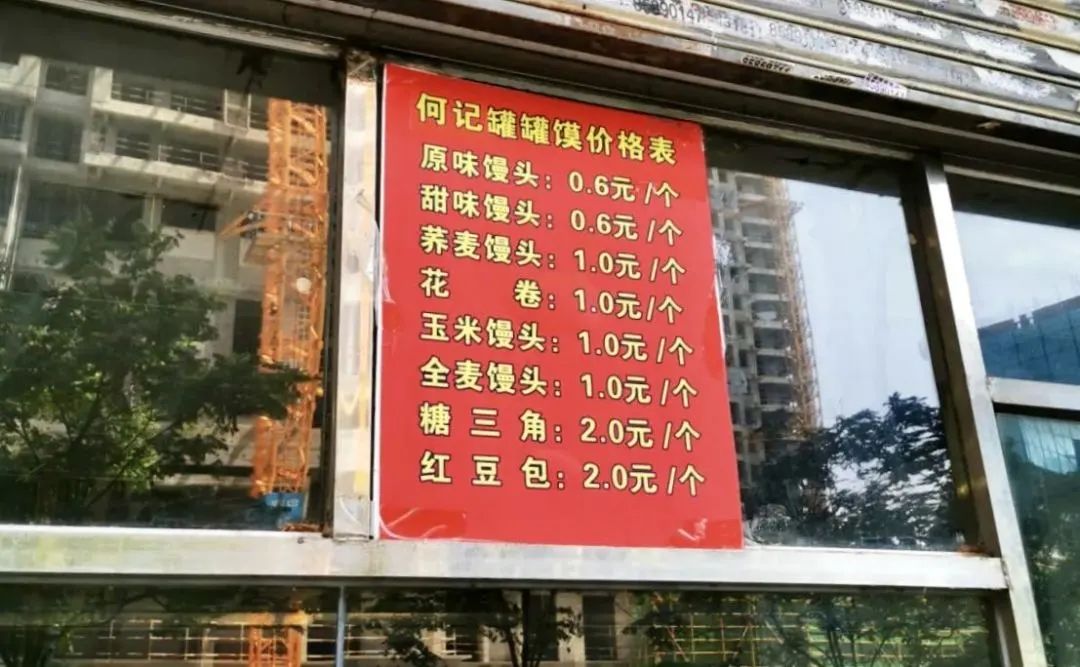 何记罐罐馍价格表
原味馒头：0.6元/个
甜味馒头：0.6元/个
荞麦馒头：1.0元/个
花 卷：1.0元/个
玉米馒头：1.0元/个
全麦馒头：1.0元/个
糖三角：2.0元/个
红豆包：2.0元/个